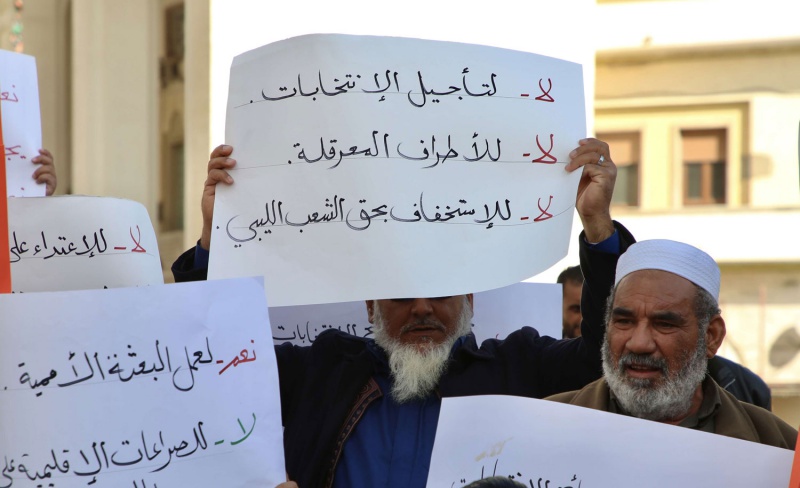 لا - لتأجيل الإنتخابات .
لا - للأطراف المعرقلة .
لا - للإستخفاف بحق الشعب الليبي .
لا - للإعتداء على
نعم - لعمل البعثة الأممية .
لا - للصراعات الإقليمية على
نعم
الانتخابات